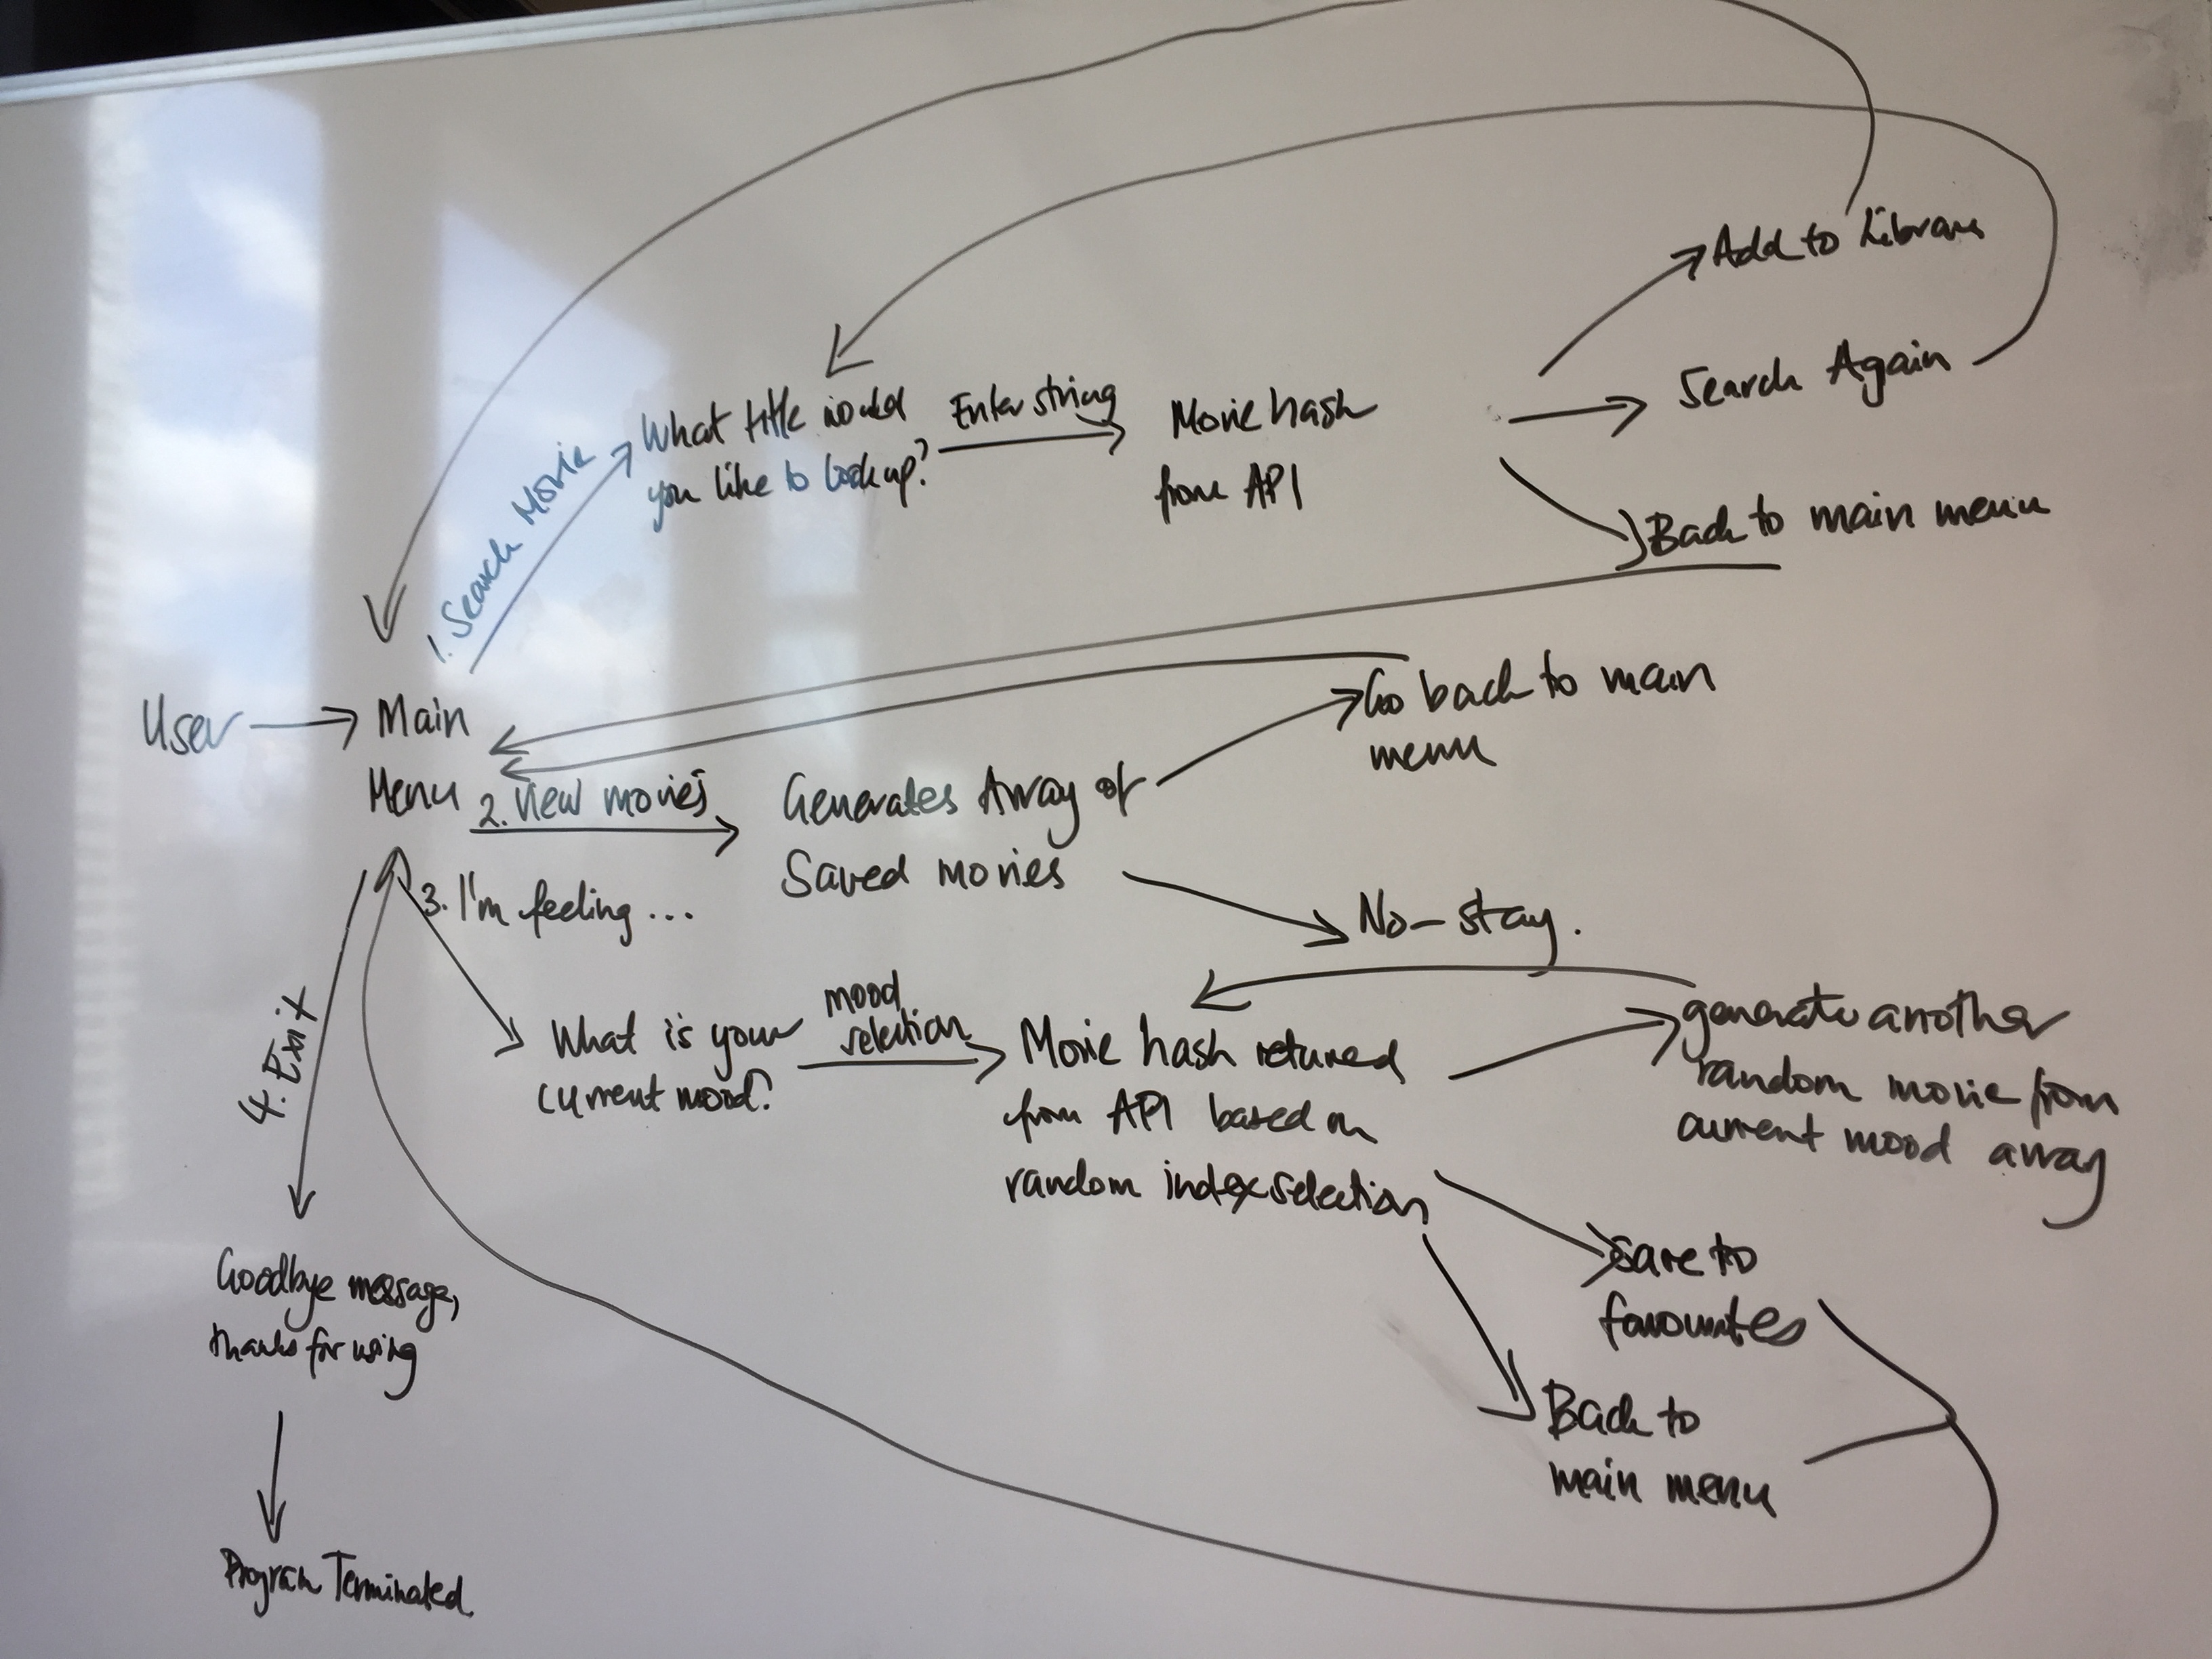 Add to Library
Search Again
Back to main menu
1. Search Movie
What title would
you like to lookup?
Enter string
Movie hash
from API
User
Main
Menu
2. View movies
Generates Array of
Saved movies
Go back to main
menu
No - stay.
3. I'm feeling ...
What is your
current mood?
mood
selection
Movie hash returned
from API based on
random index selection
generate another
random movie from
current mood array
Save to
favourites
Back to
main menu
4. Exit
Goodbye message,
thanks for using
Program Terminated